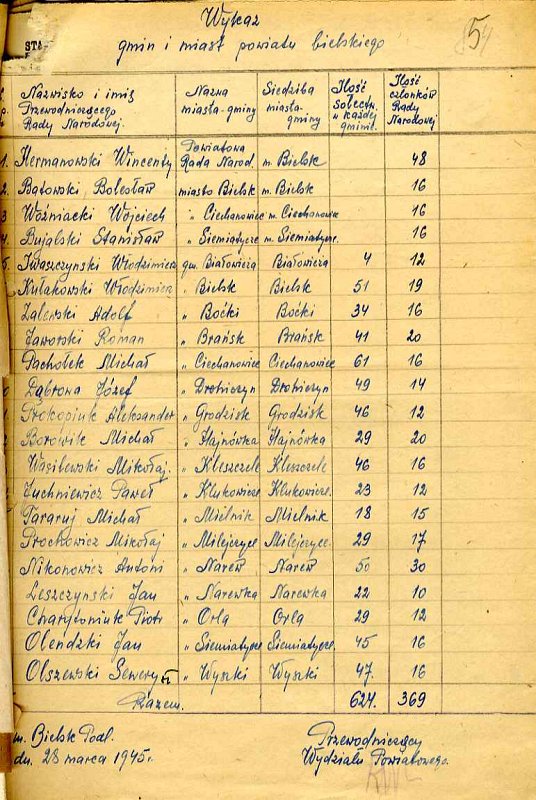 Wykaz
gmin i miast powiatu bielskiego
54
Nazwisko i imię Przewodniczącego Rady Narodowej. Nazwa miasta-gminy Siedziba miasta-gminy Ilość sołectw w każdej gminie. Ilość członków Rady Narodowej
1. Hermanowski Wincenty Powiatowa Rada Narod. m. Bielsk 48
2. Bątowski Bolesław miasto Bielsk m. Bielsk 16
3 Woźniacki Wojciech " Ciechanowiec m. Ciechanowiec 16
4. Bujalski Stanisław " Siemiatycze m. Siemiatycze. 16
5. Iwaszczynski Włodzimierz gm. Białowieża Białowieża 4 12
Kułakowski Włodzimierz " Bielsk Bielsk 51 19
Zalewski Adolf " Boćki Boćki 34 16
Jaworski Roman " Brańsk Brańsk 41 20
Pachołek Michał " Ciechanowiec Ciechanowiec 61 16
Dąbrowa Józef " Drohiczyn Drohiczyn 49 14
Prokopiuk Aleksander " Grodzisk Grodzisk 46 12
Borowik Michał " Hajnówka Hajnówka 29 20
Wasilewski Mikołaj. " Kleszczele Kleszczele 46 16
Juchniewicz Paweł " Klukowicze Klukowicze. 23 12
Tararuj Michał " Mielnik Mielnik 18 15
Prochowicz Mikołaj " Milejczyce Milejczyce. 29 17
Nikonowicz Antoni " Narew Narew 50 30
Leszczynski Jan " Narewka Narewka 22 10
Charytoniuk Piotr " Orla Orla 29 12
Olendzki Jan " Siemiatycze Siemiatycze. 45 16
Olszewski Seweryn " Wyszki Wyszki 47. 16
Razem. 624. 369
m. Bielsk Podl.
dn. 28 marca 1945r.
Przewodniczący
Wydziału Powiatowego.